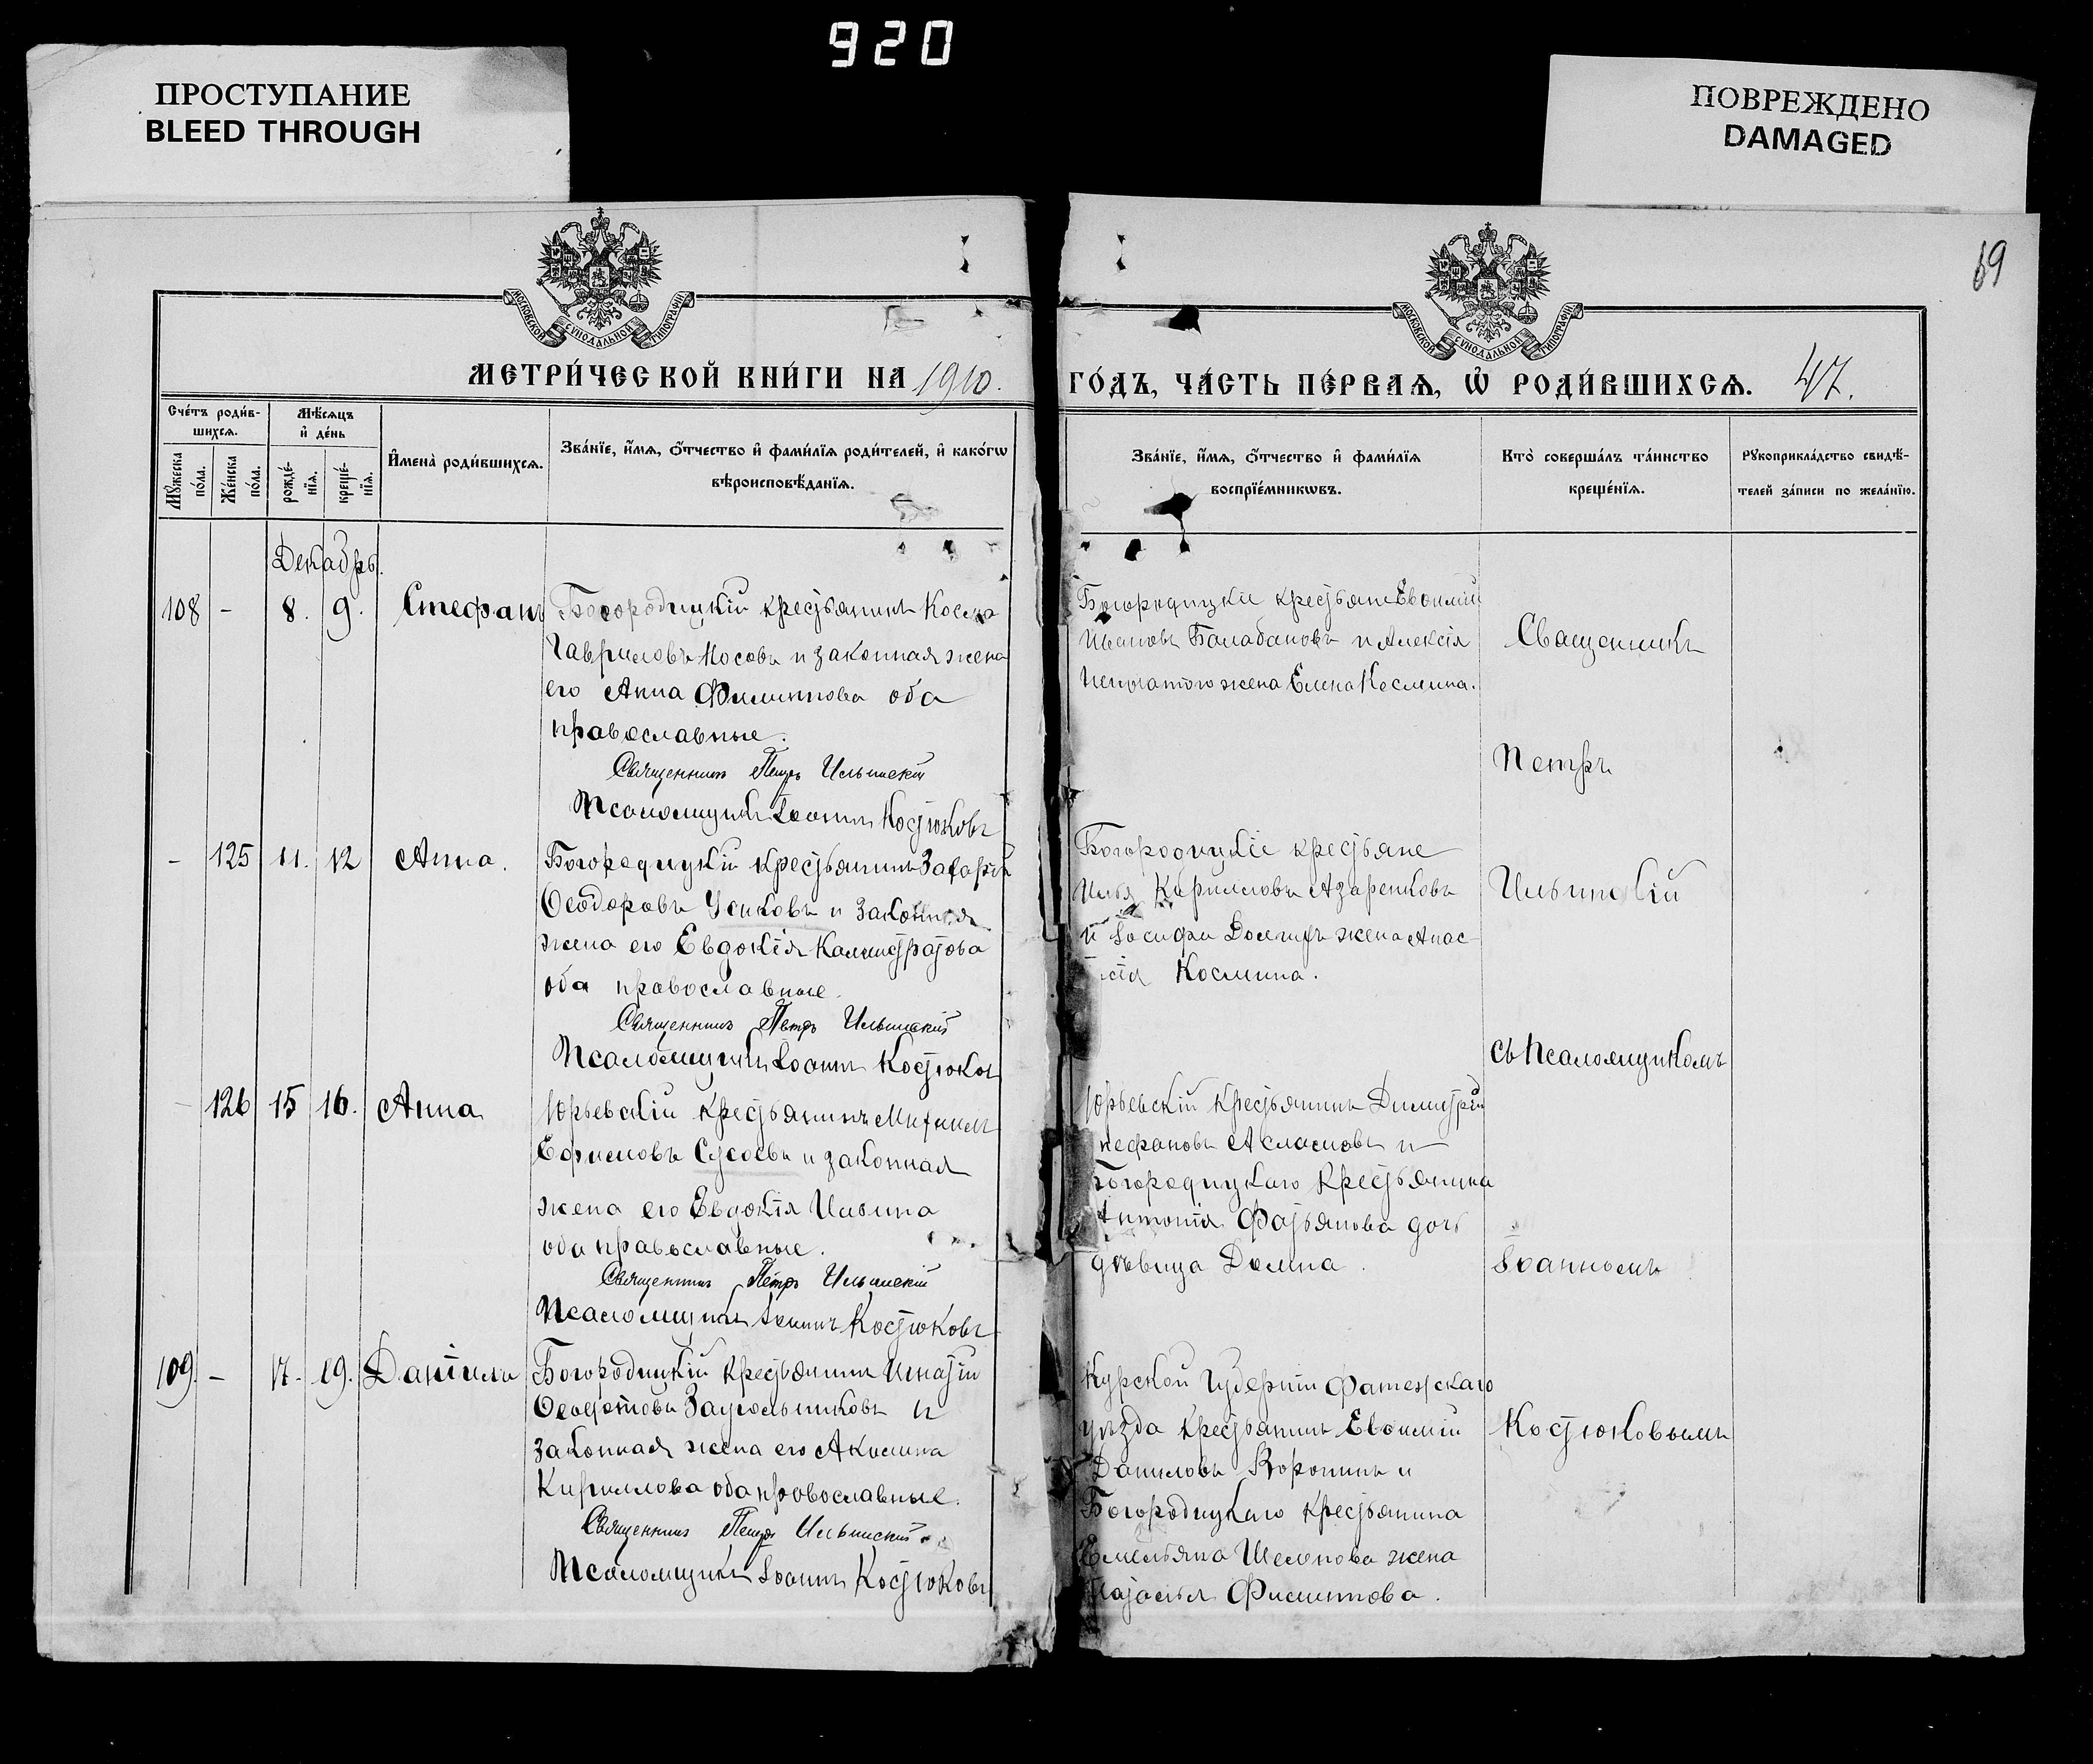 920
ПРОСТУПАНИЕ
BLEED THROUGH
ПОВРЕЖДЕНО
DAMAGED
69
МОСКОВСКОЙ СѴНОДАЛЬНОЙ ТИПОГРАФІИ
МОСКОВСКОЙ СѴНОДАЛЬНОЙ ТИПОГРАФІИ
МЕТРИ́ЧЕСКОЙ КНИ́ГИ НА 1910.
ГО́ДЪ, ЧА́СТЬ ПЕ́РВАѦ, Ѡ РОДИ́ВШИХСѦ. 47.
Сче́тъ роди́в-
шихсѧ.
Мꙋ́жеска по́ла.
Же́нска по́ла.
Мѣ́сѧцъ и҆ де́нь
рожде́-нїѧ.
креще́-нїѧ.
И҆мена̀ роди́вшихсѧ.
Зва́нїе, и҆́мѧ, ѻ҆́тчество и҆ фами́лїѧ роди́телей, и҆ како́гѡ
вѣроисповѣ́данїѧ.
Зва́нїе, и҆́мѧ, ѻ҆́тчество и҆ фами́лїѧ
воспрїе́мникѡвъ.
Кто̀ соверша́лъ та́инство
креще́нїѧ.
Рꙋкоприкла́дство свидѣ́-
телей за́писи по жела́нїю.
Декабрь.
108 - 8. 9. Стефанъ
Богородицкій крестьянинъ Косма
Гавриловъ Носовъ и законная жена
его Анна Филиппова оба
православные.
Священникъ Петръ Ильинскій
Псаломщикъ Іоаннъ Костюковъ
Богородицкіе крестьяне Евѳимій
Ивановъ Балабановъ и Алексія
жена Елена Космина.
- 125 11. 12 Анна.
Богородицкій крестьянинъ Захарій
Ѳеодоровъ Усиковъ и законная
жена его Евдокія Калистратова
оба православные.
Священникъ Петръ Ильинскій
Псаломщикъ Іоаннъ Костюковъ
Богородицкіе крестьяне
Илья Кирилловъ Азаренковъ
и Іосифа жена Анас
сія Космина.
- 126 15 16. Анна
Юрьевскій крестьянинъ Михаилъ
Ефимовъ и законная
жена его Евдокія Ильина
оба православные.
Священникъ Петръ Ильинскій
Псаломщикъ Іоаннъ Костюковъ
Юрьевскій крестьянинъ Димитрій
тефановъ и
Богородицкаго крестьянина
Антонія дочь
дѣвица Домна.
109. - 17. 19. Даніилъ
Богородицкій крестьянинъ Игнатій
Заугольниковъ и
законная жена его Акилина
Кириллова оба православные.
Священникъ Петръ Ильинскій
Псаломщикъ Іоаннъ Костюковъ
Курской губерніи Фатежскаго
уѣзда крестьянинъ Евѳимій
Даниловъ Воронинъ и
Богородицкаго крестьянина
Емельяна Шелепова жена
Филиппова.
Священникъ
Петръ
Ильинскій
съ Псаломщикомъ
Іоанномъ
Костюковымъ